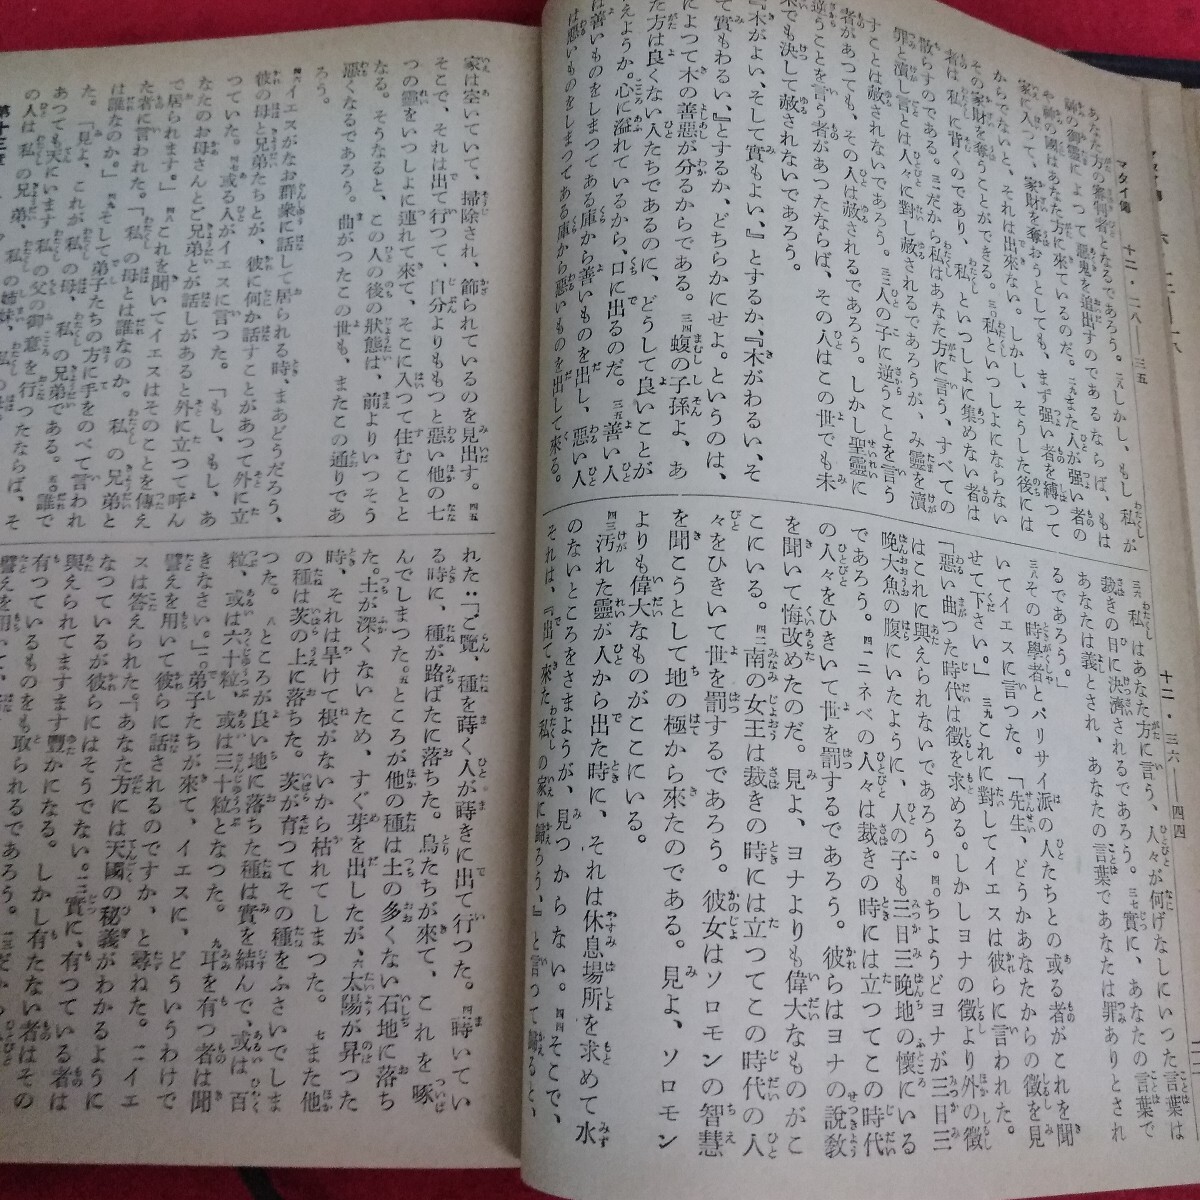 マタイ傳 十二・二八—三五
あなた方の審判者となるであろう。二八しかし、もし私が
神の御靈によつて惡鬼を追出すのであるならば、もは
や神の國はあなた方に來ているのだ。二九また人が强い者の
家に入つて、家財を奪おうとしても、まず强い者を縛つて
からでないと、それは出來ない。しかし、そうした後には
その家財を奪うことができる。三〇私といつしよにならない
者は私に背くのであり、私といつしよに集めない者は
散らすのである。三一だから私はあなた方に言う、すべての
罪と瀆し言とは人々に對し赦されるであろうが、み靈を瀆
すことは赦されないであろう。三二人の子に逆うことを言う
者があつても、その人は赦されるであろう。しかし聖靈に
逆うことを言う者があつたならば、その人はこの世でも未
來でも決して赦されないであろう。
『木がよい、そして實もよい、』とするか、『木がわるい、そ
て實もわるい、』とするか、どちらかにせよ。というのは、
によつて木の善惡が分るからである。三四蝮の子孫よ、あ
た方は良くない人たちであるのに、どうして良いことが
えようか。心に溢れているから、口に出るのだ。三五善い人
は善いものをしまつてある庫から善いものを出し、惡い人
は惡いものをしまつてある庫から惡いものを出して來る。
十二・三六—四四
三六私はあなた方に言う、人々が何げなしにいつた言葉は
裁きの日に決濟されるであろう。三七實に、あなたの言葉で
あなたは義とされ、あなたの言葉であなたは罪ありとされ
るであろう。」
三八その時學者とパリサイ派の人たちとの或る者がこれを聞
いてイエスに言つた。「先生、どうかあなたからの徵を見
せて下さい。」三九これに對してイエスは彼らに言われた。
「惡い曲つた時代は徵を求める。しかしヨナの徵より外の徵
はこれに與えられないであろう。四〇ちようどヨナが三日三
晩大魚の腹にいたように、人の子も三日三晩地の懷にいる
であろう。四一ニネベの人々は裁きの時には立つてこの時代
の人々をひきいて世を罰するであろう。彼らはヨナの說敎
を聞いて悔改めたのだ。見よ、ヨナよりも偉大なものがこ
こにいる。四二南の女王は裁きの時には立つてこの時代の人
々をひきいて世を罰するであろう。彼女はソロモンの智慧
を聞こうとして地の極から來たのである。見よ、ソロモン
よりも偉大なものがここにいる。
四三汚れた靈が人から出た時に、それは休息場所を求めて水
のないところをさまようが、見つからない。四四そこで、
それは、『出て來た私の家に歸ろう、』と言つて歸ると、
家は空いていて、掃除され、飾られているのを見出す。四五
そこで、それは出て行つて、自分よりももつと惡い他の七
つの靈をいつしよに連れて來て、そこに入つて住むことと
なる。そうなると、この人の後の狀態は、前よりいつそう
惡くなるであろう。曲がつたこの世も、またこの通りであ
ろう。
四六イエスがなお群衆に話して居られる時、まあどうだろう、
彼の母と兄弟たちとが、彼に何か話すことがあつて外に立
つていた。四七或る人がイエスに言つた。「もし、もし、あ
なたのお母さんとご兄弟とが話しがあると外に立つて呼ん
で居られます。」四八これを聞いてイエスはそのことを傳え
た者に言われた。「私の母とは誰なのか。私の兄弟と
は誰なのか。」四九そして弟子たちの方に手をのべて言われ
た。「見よ、これが私の母、私の兄弟である。五〇誰で
あつても天にいます私の父の御意を行つたならば、そ
の人は私の兄弟、私の姉妹、私の
第十三章
れた：「ご覽、種を蒔く人が蒔きに出て行つた。四蒔いてい
る時に、種が路ばたに落ちた。鳥たちが來て、これを啄
んでしまつた。五ところが他の種は土の多くない石地に落ち
た。土が深くないため、すぐ芽を出したが、六太陽が昇つた
時、それは旱けて根がないから枯れてしまつた。七また他
の種は茨の上に落ちた。茨が育つてその種をふさいでしま
つた。八ところが良い地に落ちた種は實を結んで、或は百
粒、或は六十粒、或は三十粒となつた。九耳を有つ者は聞
きなさい。」一〇弟子たちが來て、イエスに、どういうわけで
譬えを用いて彼らに話されるのですか、と尋ねた。一一イエ
スは答えられた「あなた方には天國の秘義がわかるように
なつているが彼らにはそうでない。一二實に、有つている者は
與えられてますます豐かになる。しかし有たない者はその
有つているものをも取られるであろう。